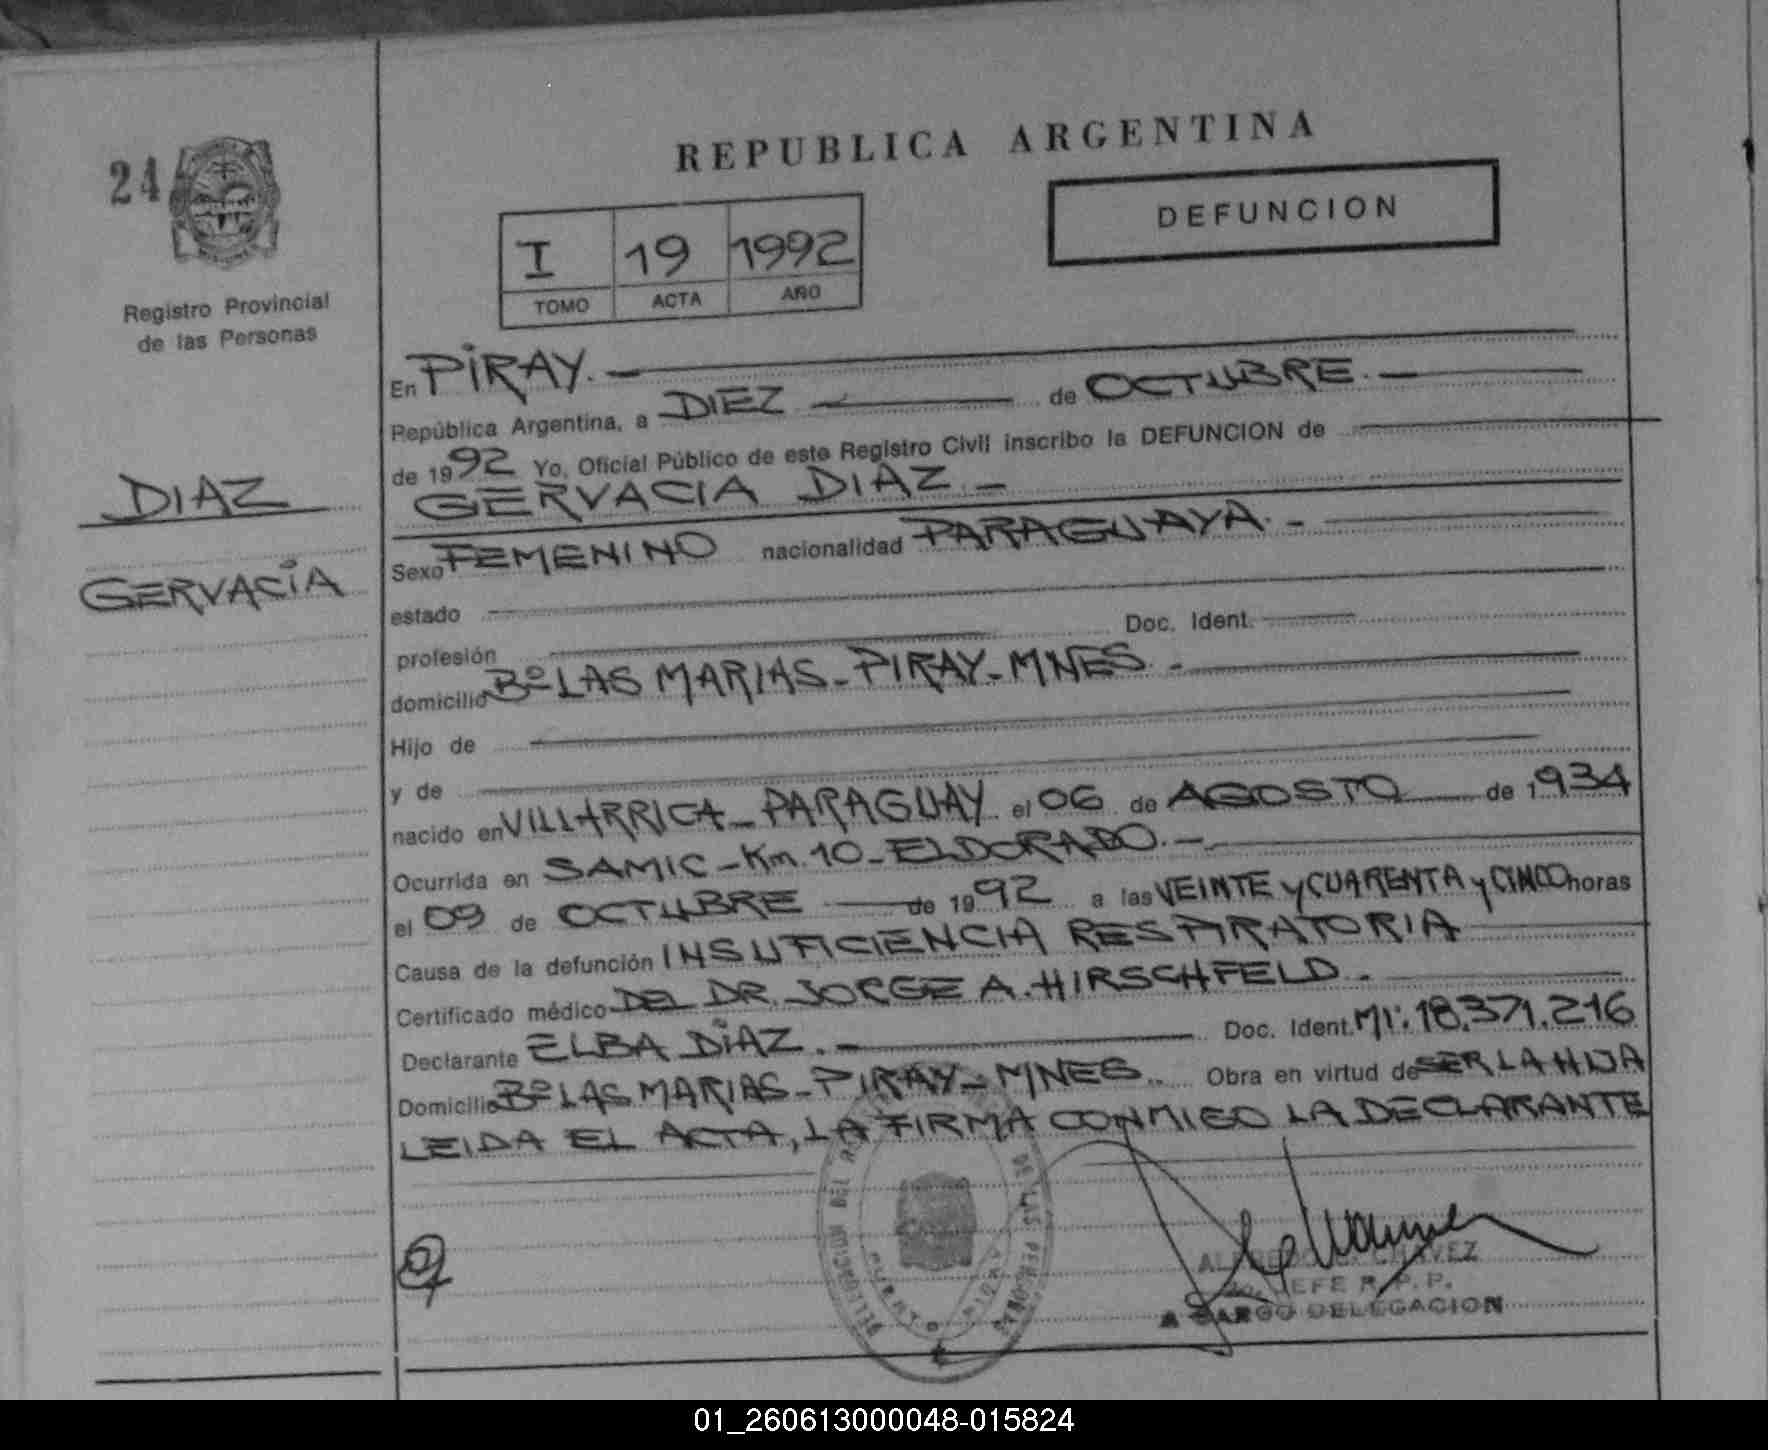 24
Registro Provincial
de las Personas
REPUBLICA ARGENTINA
DEFUNCION
I 19 1992
TOMO ACTA AÑO
DIAZ
GERVACIA
En PIRAY.
República Argentina, a DIEZ de OCTUBRE.
de 1992 Yo, Oficial Público de este Registro Civil inscribo la DEFUNCION de
GERVACIA DIAZ.
Sexo FEMENINO nacionalidad PARAGUAYA.
estado
profesión Doc. Ident.
domicilio Bº LAS MARIAS - PIRAY - MNES.
Hijo de
y de
nacido en VILLARRICA - PARAGUAY el 06 de AGOSTO de 1934
Ocurrida en SAMIC - Km. 10 - ELDORADO.
el 09 de OCTUBRE de 1992 a las VEINTE y CUARENTA y CINCO horas
Causa de la defunción INSUFICIENCIA RESPIRATORIA
Certificado médico DEL DR. JORGE A. HIRSCHFELD.
Declarante ELBA DIAZ. Doc. Ident. MI: 18.371.216
Domicilio Bº LAS MARIAS - PIRAY - MNES. Obra en virtud de SER LA HIJA
LEIDA EL ACTA, LA FIRMA CONMIGO LA DECLARANTE
DE LAS PERSONAS
A CARGO DELEGACION
01_260613000048-015824